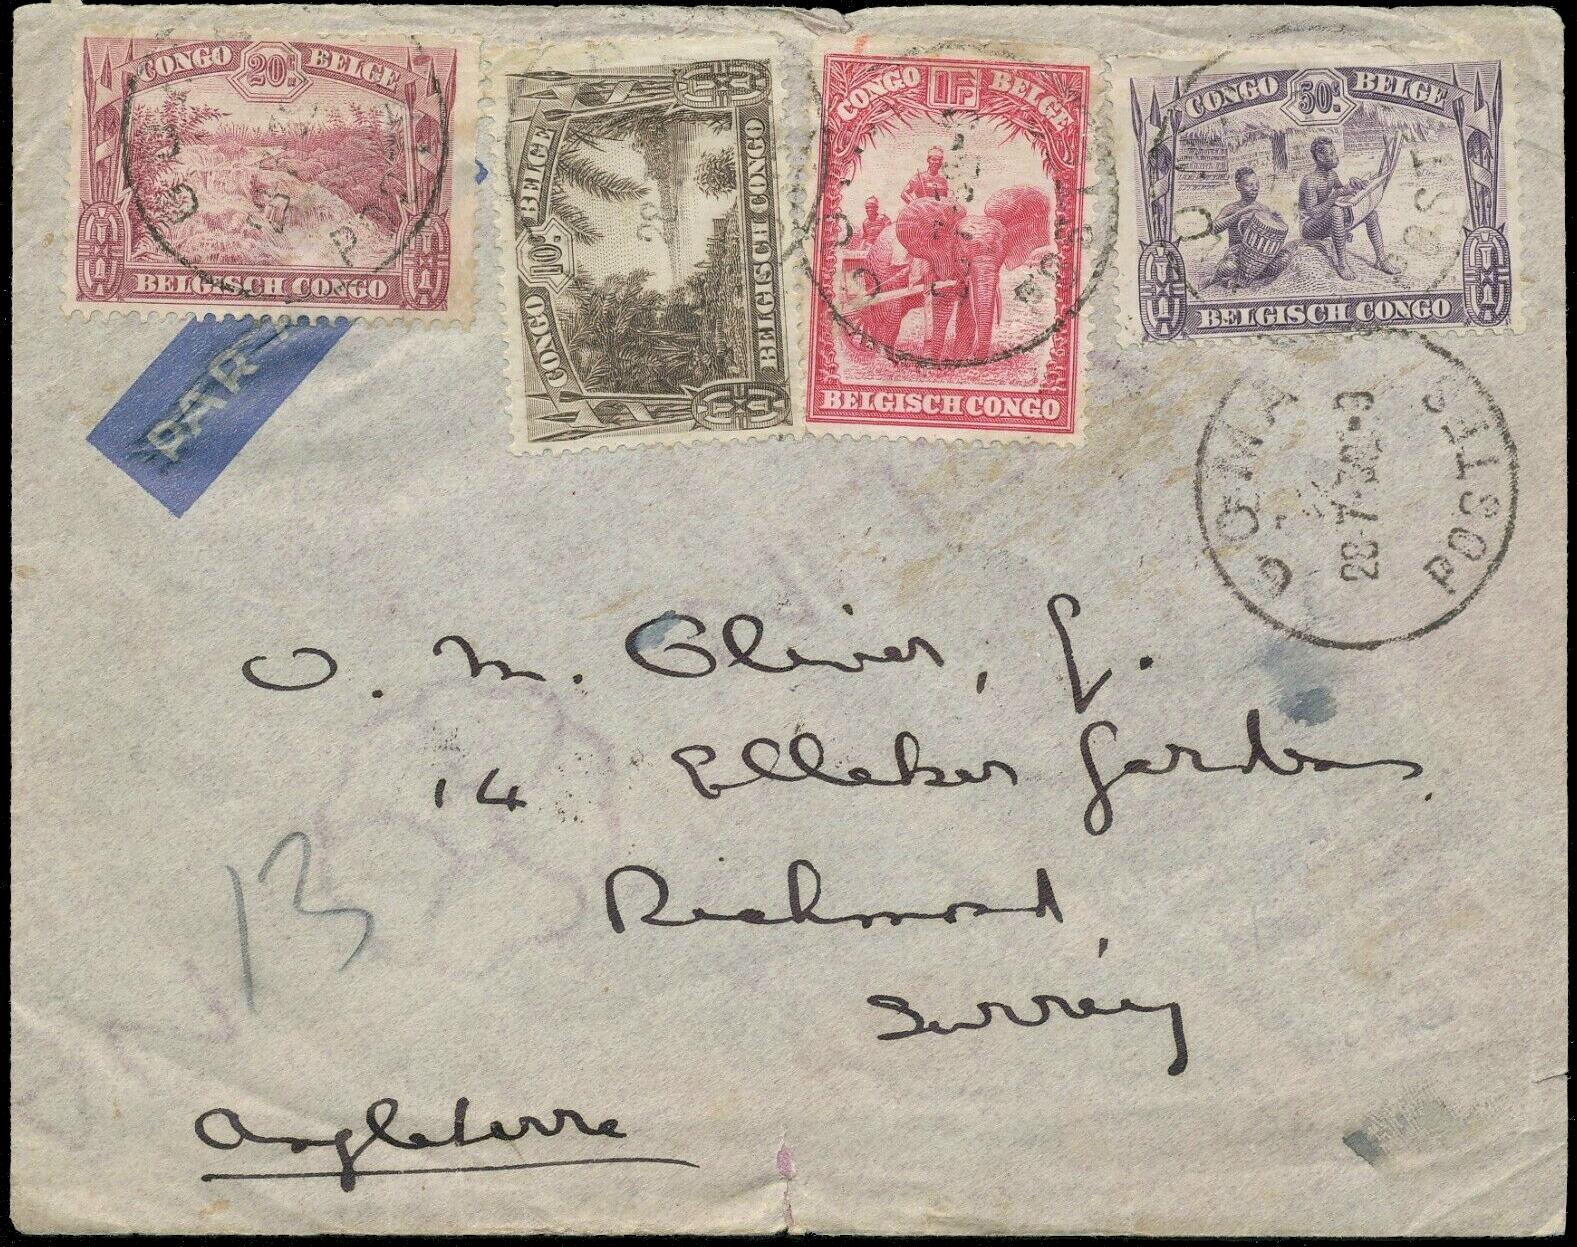 CONGO 20c BELGE
BELGISCH CONGO
CONGO 10c BELGE
BELGISCH CONGO
CONGO 1F BELGE
BELGISCH CONGO
CONGO 50c BELGE
BELGISCH CONGO
PAR
GOMA
POSTES
O. M. Oliver, Esq.
14 Elleker Gardens,
Richmond,
Surrey
13
Angleterre